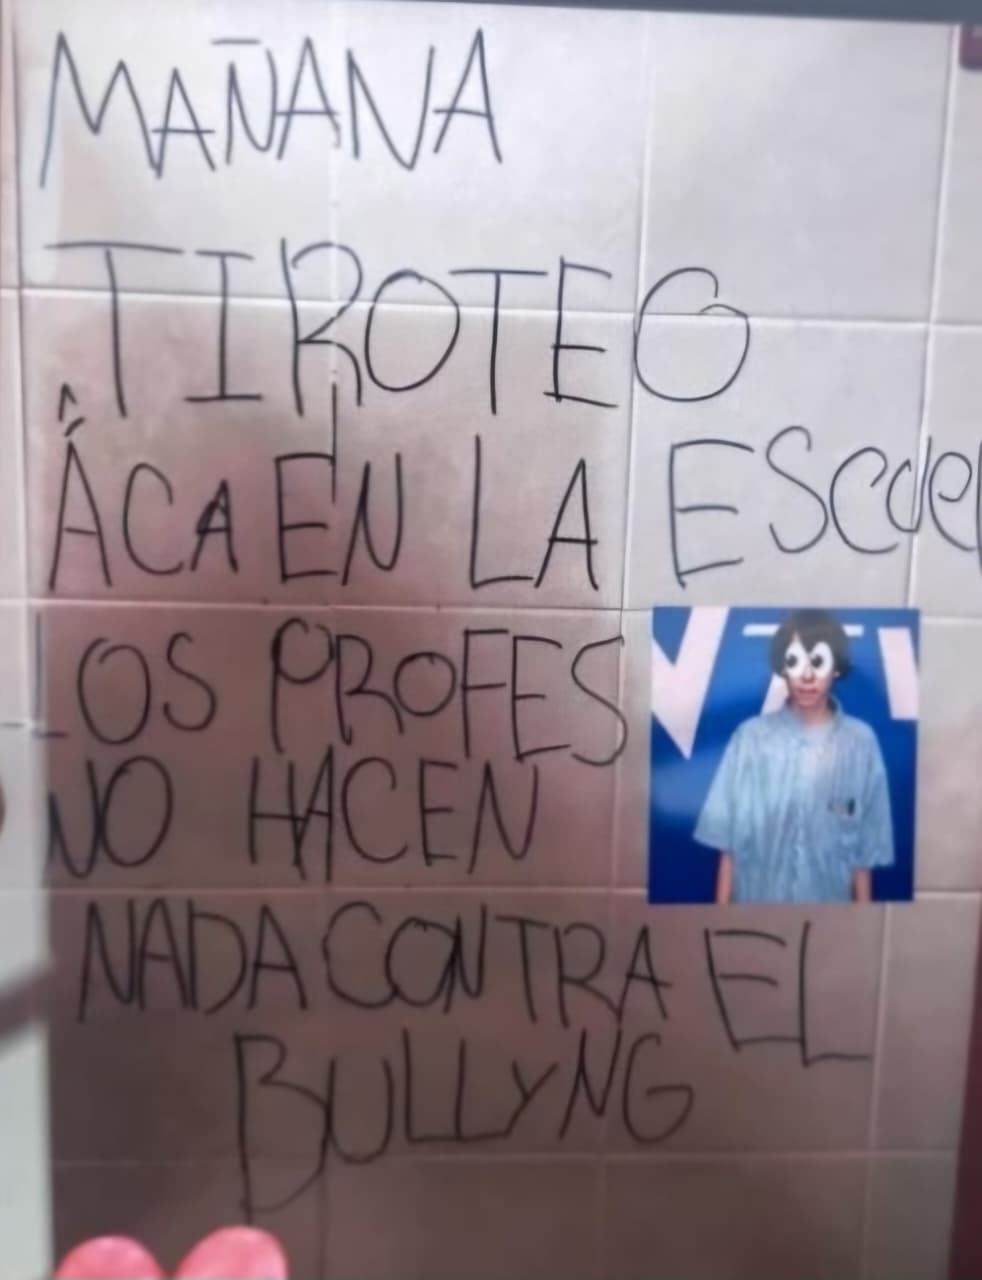 MAÑANA
TIROTEO
ÁCA EN LA ESCUEL
LOS PROFES
NO HACEN
NADA CONTRA EL
BULLYNG